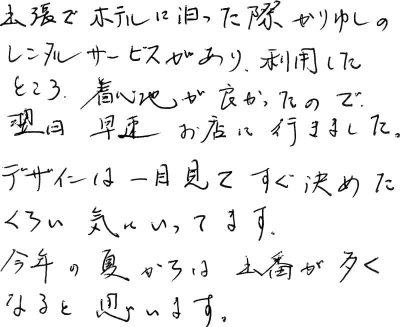 出張で ホテルに泊った際 かりゆしの
レンタルサービスがあり、利用した
ところ、着心地が良かったので、
翌日 早速 お店に行きました。
デザインは一目見て すぐ決めた
くらい 気にいってます。
今年の夏からは 出番が多く
なると思います。